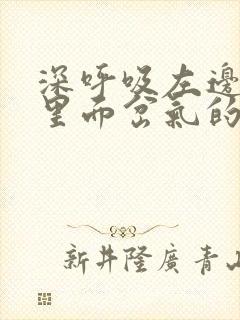 深呼吸左邊
里而岔氣的
新井隆廣青山